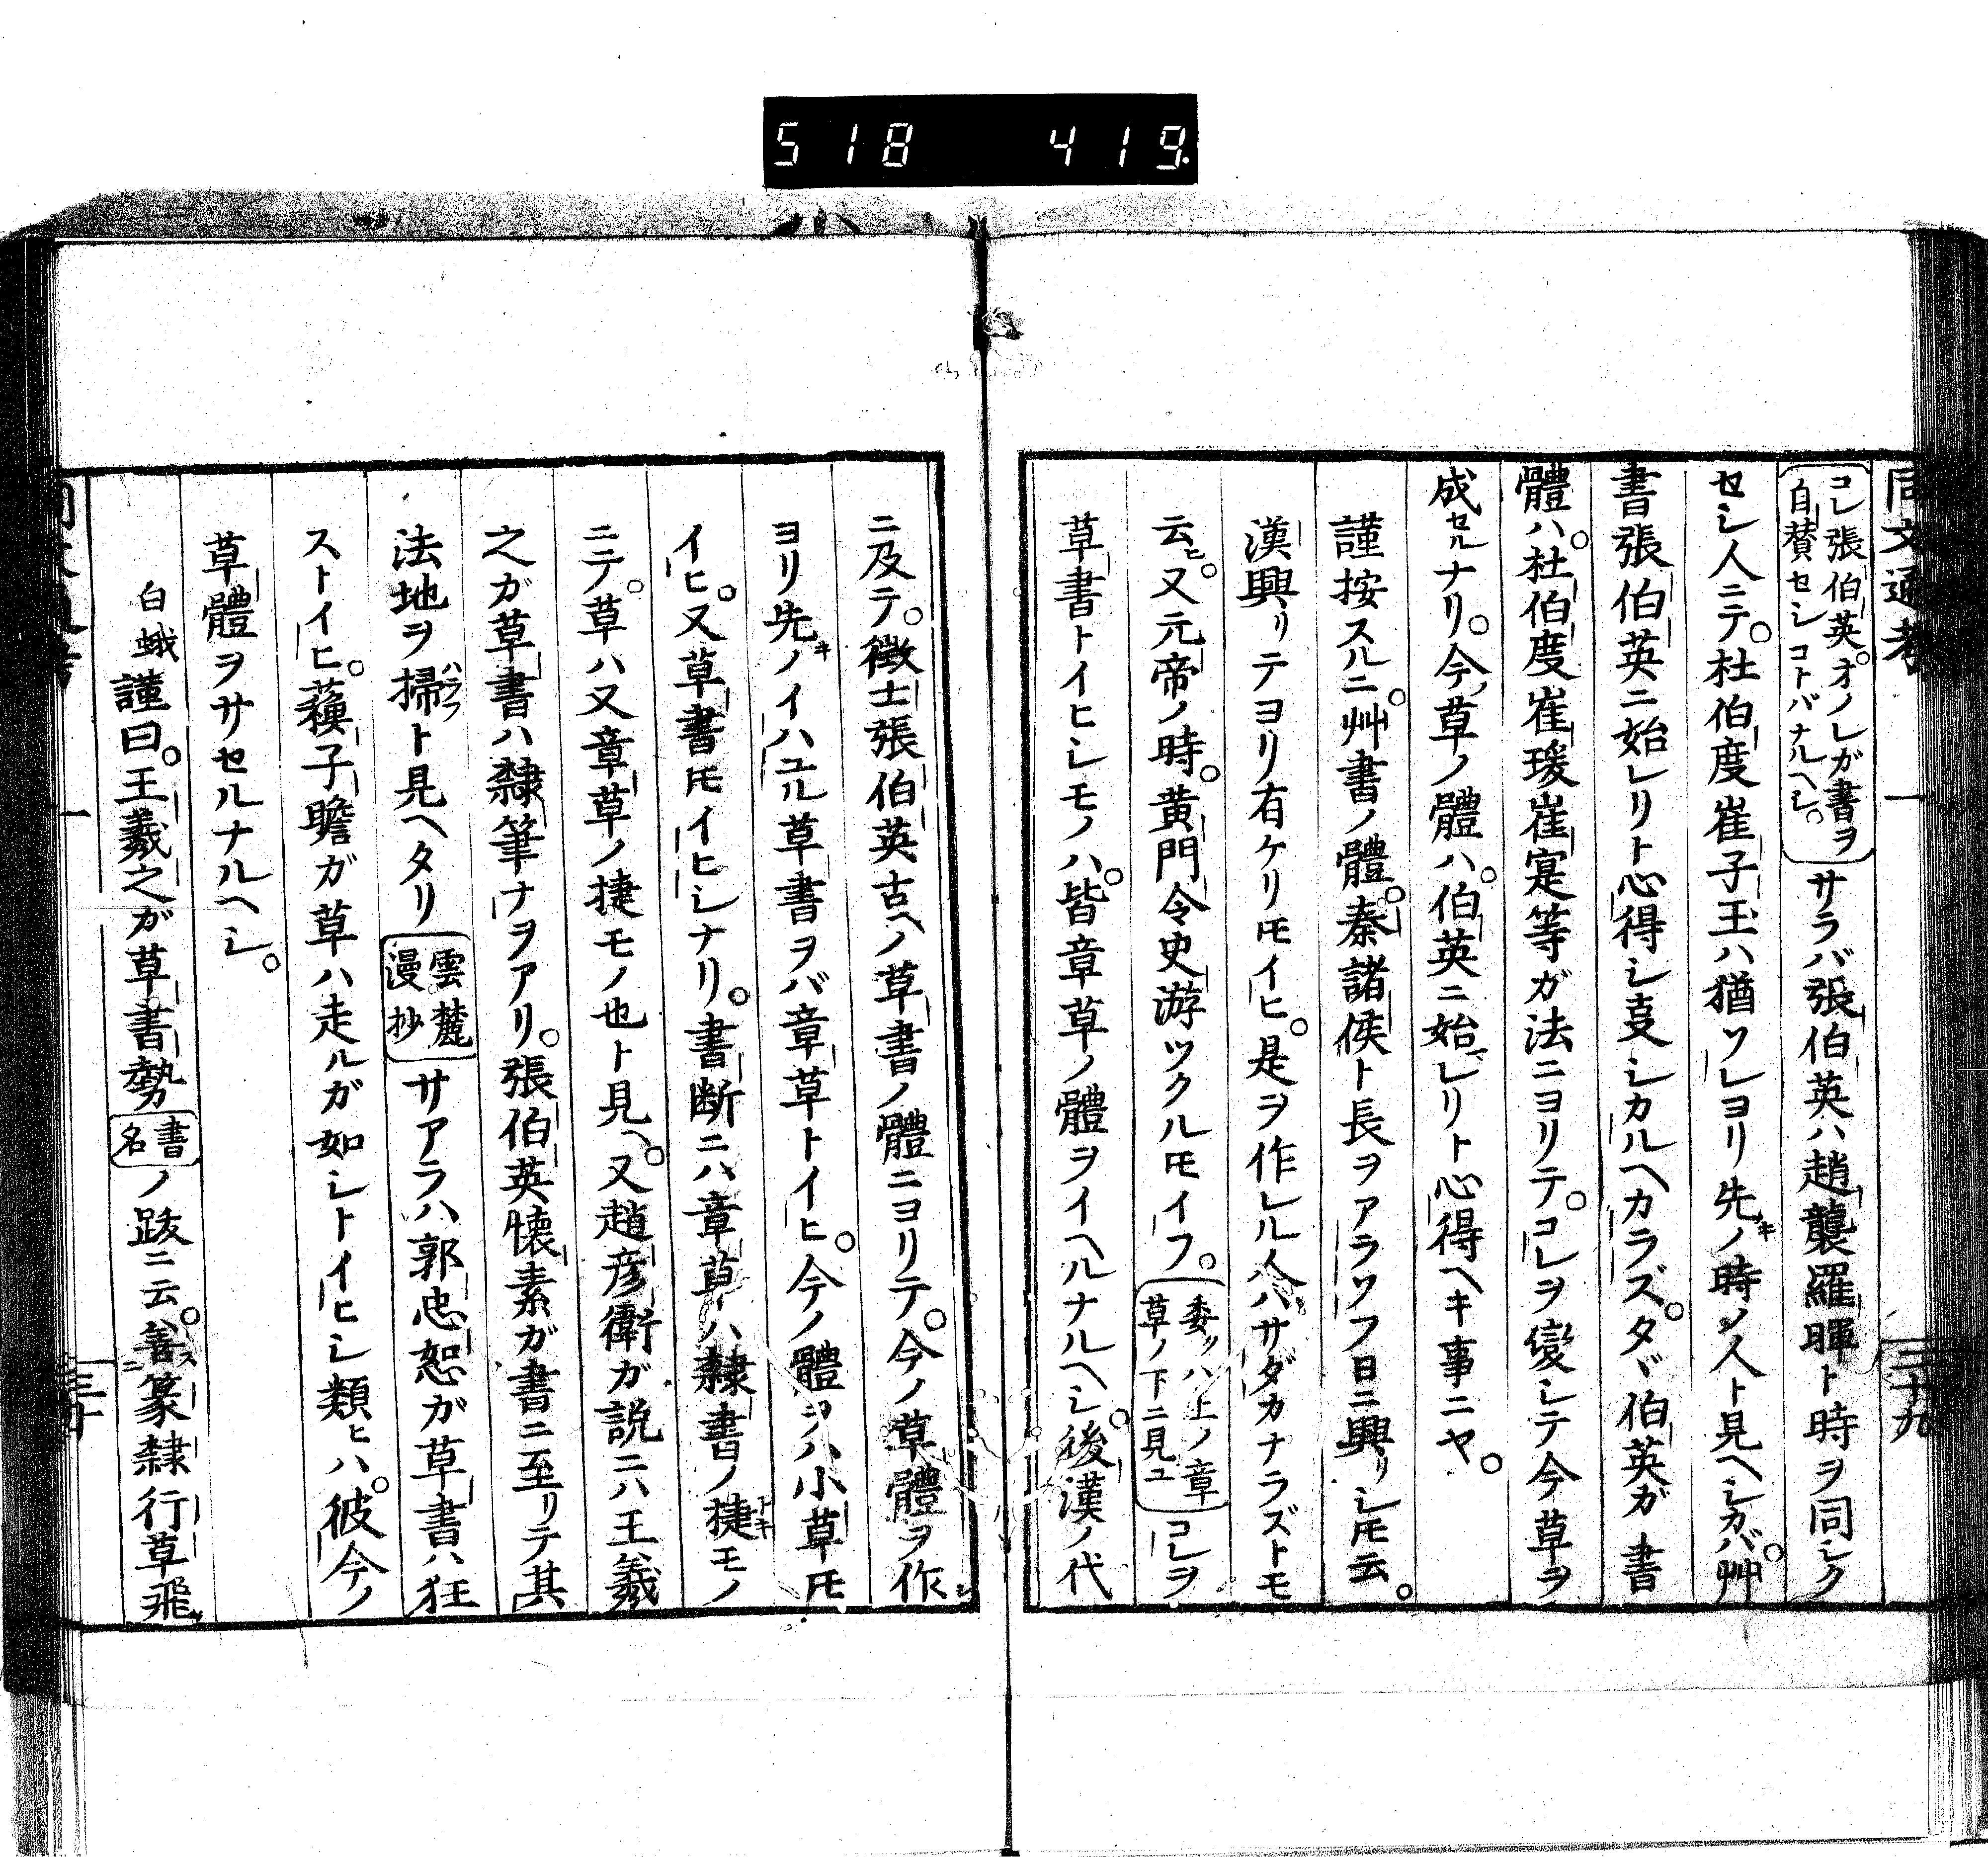 518 419.
同文通考 一 三十九
コレ張伯英。オノレガ書ヲ
自賛セシコトバナルヘシ。
サラバ張伯英ハ趙襲羅暉ト時ヲ同シク
セシ人ニテ。杜伯度崔子玉ハ猶ソレヨリ先キノ時ノ人ト見ヘシカバ。艸
書張伯英ニ始レリト心得シ叓シカルヘカラズ。タヾ伯英ガ書
體ハ。杜伯度崔瑗崔寔等ガ法ニヨリテ。コレヲ變シテ今草ヲ
成セルナリ。今ノ草ノ體ハ。伯英ニ始レリト心得ヘキ事ニヤ。
謹按スルニ。艸書ノ體。秦諸侯ト長ヲアラソフ日ニ興リシ𪜈云。
漢興リテヨリ有ケリ𪜈イヒ。是ヲ作レル人ハサダカナラズトモ
云ヒ。又元帝ノ時。黄門令史游ツクル𪜈イフ。
委クハ上ノ章
草ノ下ニ見ユ
コレヲ
草書トイヒシモノハ。皆章草ノ體ヲイヘルナルヘシ。後漢ノ代
ニ及テ。徴士張伯英古ヘノ草書ノ體ニヨリテ。今ノ草體ヲ作レ
ヨリ先キノイハユル草書ヲバ章草トイヒ。今ノ體ヲハ小草𪜈
イヒ。又草書𪜈イヒシナリ。書断ニハ章草ハ隸書ノ捷トキモノ
ニテ。草ハ又章草ノ捷モノ也ト見ヘ。又趙彦衛ガ説ニハ王羲
之ガ草書ハ隸筆ナヲアリ。張伯英懐素ガ書ニ至リテ其
法地ヲ掃ハラフト見ヘタリ
雲麓
漫抄
サアラハ郭忠恕ガ草書ハ狂
ストイヒ。蘓子瞻ガ草ハ走ルガ如シトイヒシ類ヒハ。彼今ノ
草體ヲサセルナルヘシ。
白蛾謹曰。王羲之ガ草書勢
書
名
ノ跋ニ云。善ス篆隸行草飛